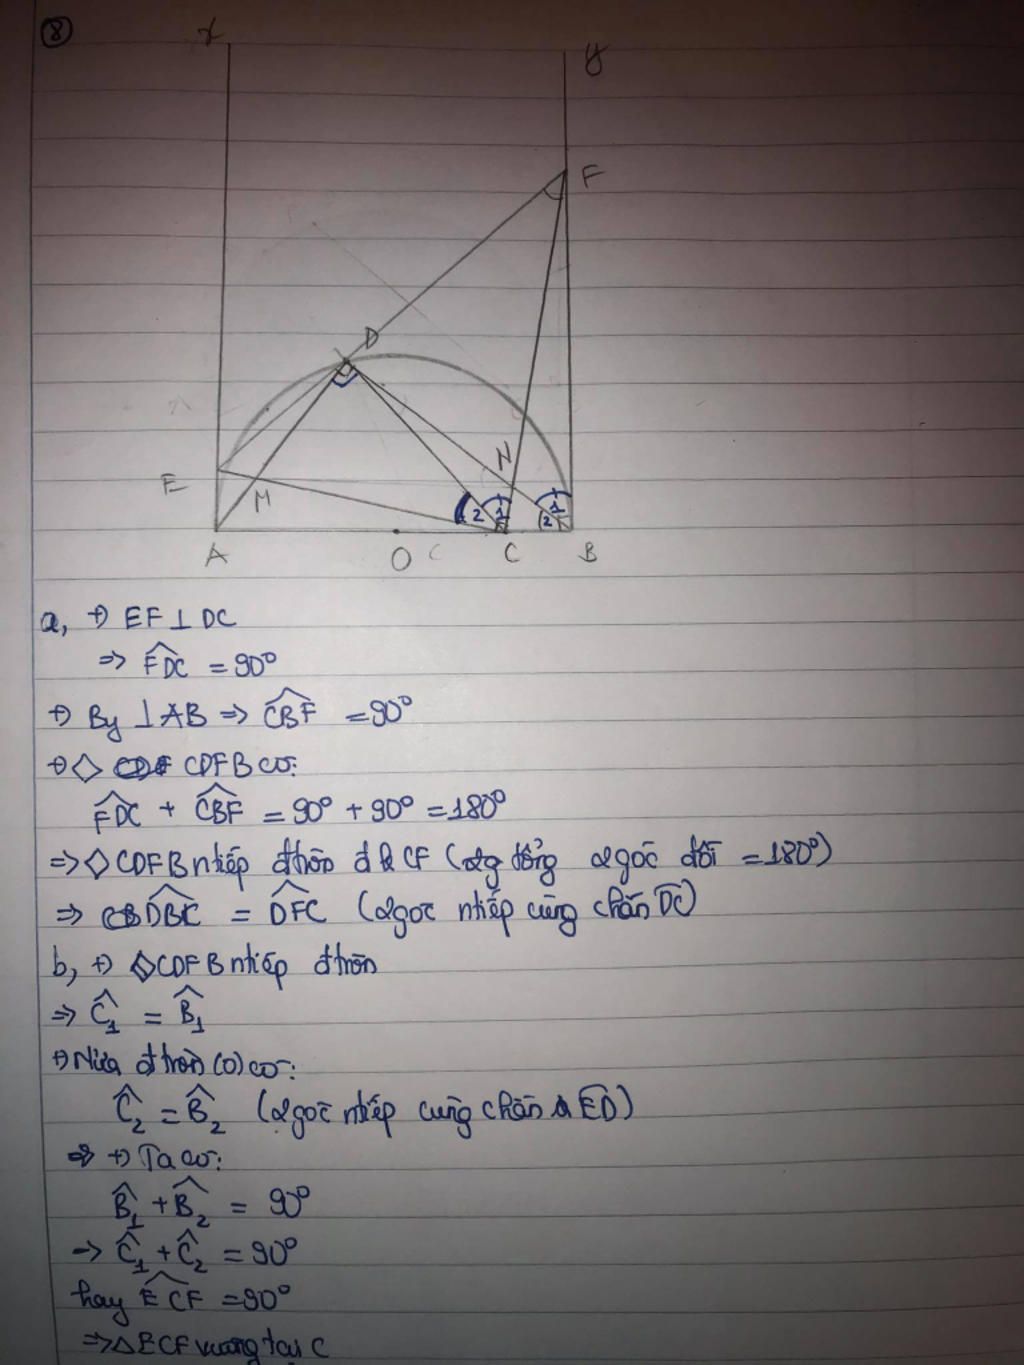 8
x
y
F
D
E
M
N
2 1
1
2
A
O
C
C
B
a, +) EF ⊥ DC
=> FDC^ = 90°
+) By ⊥ AB => CBF^ = 90°
+) ◇ CDFB có:
FDC^ + CBF^ = 90° + 90° = 180°
=> ◇ CDFB ntiếp đtròn đk CF (tg tổng 2 góc đối = 180°)
=> DBC^ = DFC^ (2 góc ntiếp cùng chắn DC)
b, +) ◇ CDFB ntiếp đtròn
=> C₁^ = B₁^
+) Nửa đtròn (O) có:
C₂^ = B₂^ (2 góc ntiếp cùng chắn ED)
+) Ta có:
B₁^ + B₂^ = 90°
=> C₁^ + C₂^ = 90°
hay ECF^ = 90°
=> △ ECF vuông tại C